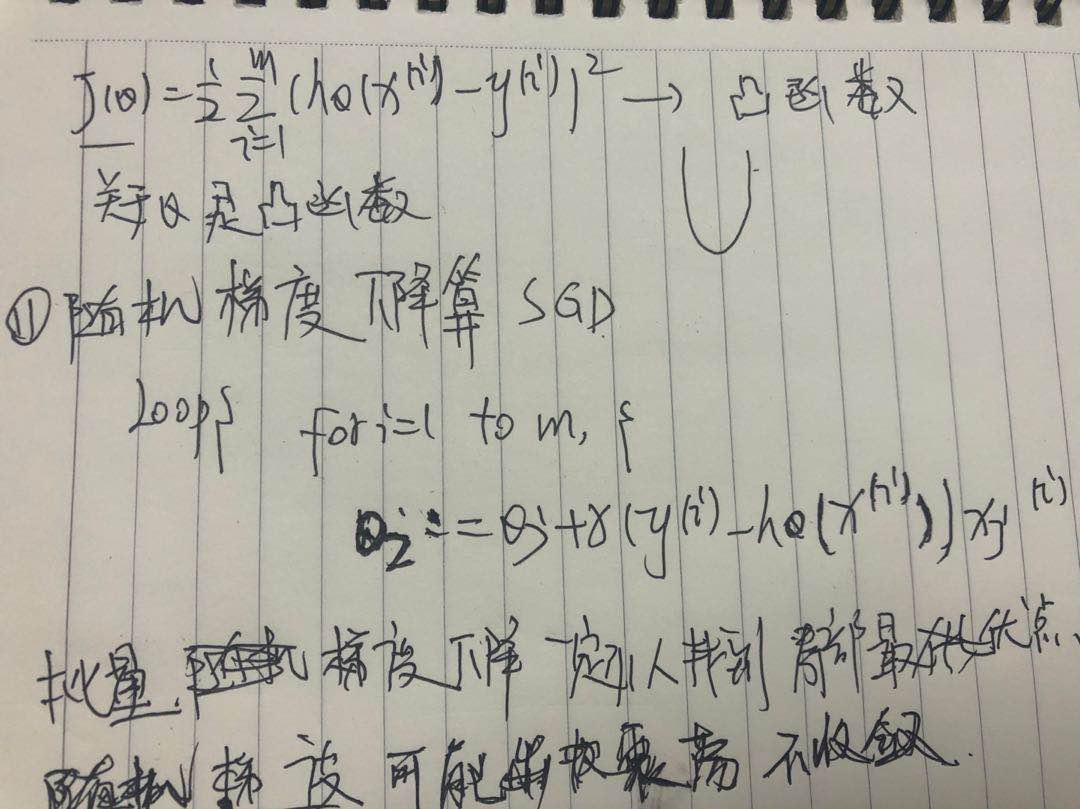 J(θ) = 1/2 Σ_{i=1}^{m} (hθ(x^(i)) - y^(i))² → 凸函数
关于θ是凸函数
① 随机梯度下降算 SGD
Loop{ for i=1 to m, {
θj := θj + α(y^(i) - hθ(x^(i))) xj^(i)
批量 梯度下降 一定可以找到局部最优点、
随机梯度可能 震荡不收敛.